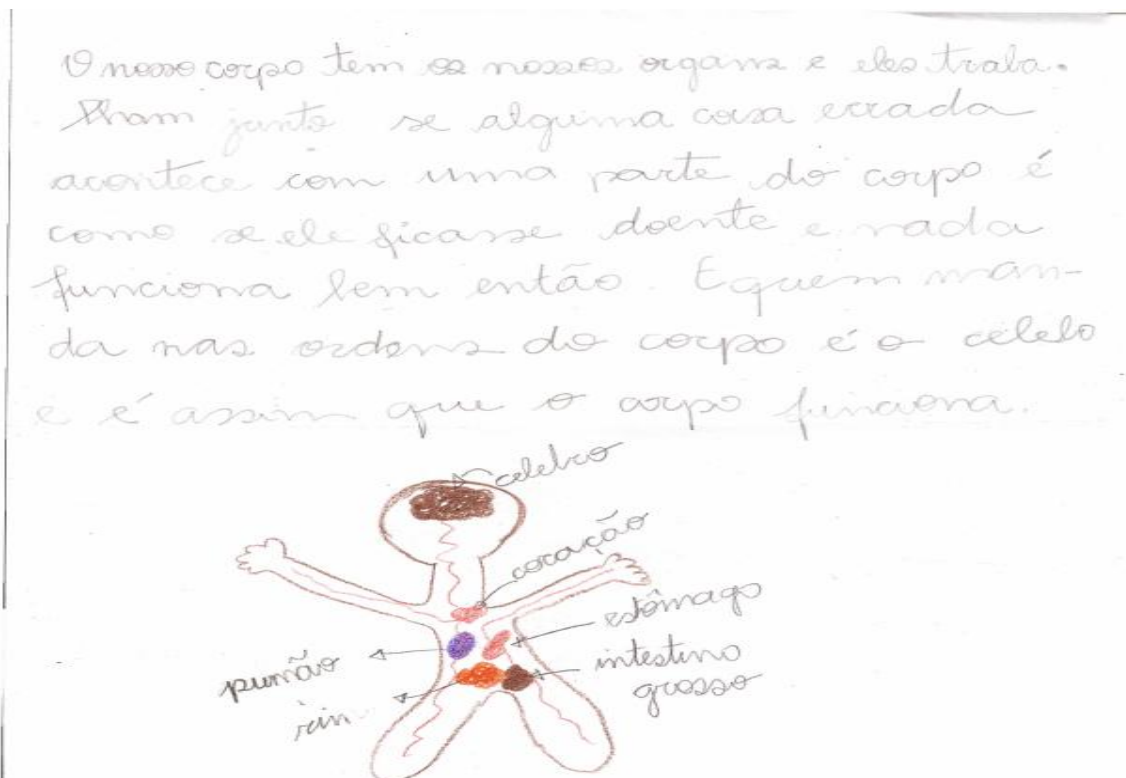 O nosso corpo tem os nossos organs e eles traba-
lham junto se alguma coisa errada
acontece com uma parte do corpo é
como se ele ficasse doente e nada
funciona bem então. E quem man-
da nas ordens do corpo é o célelo
e é assim que o corpo funciona.
celebro
coração
estômago
pumão
intestino
grosso
rin